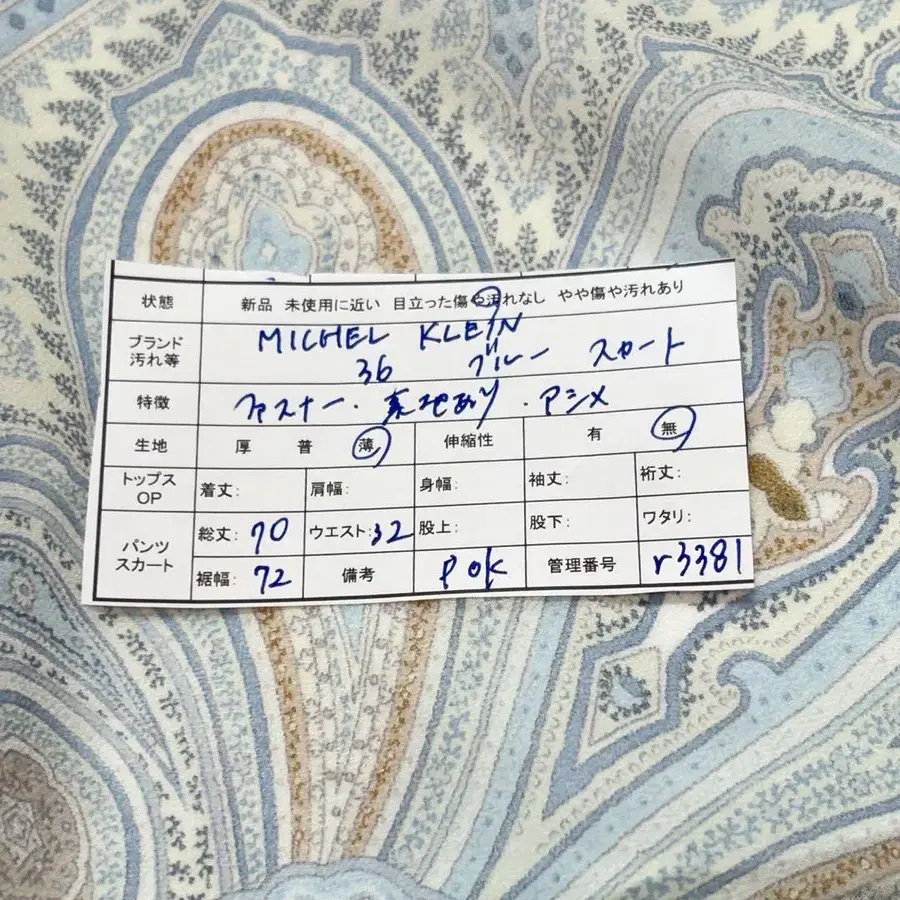 状態 新品 未使用に近い 目立った傷や汚れなし やや傷や汚れあり
ブランド 汚れ等 MICHEL KLEIN
36 ブルー スカート
特徴 ファスナー・裏地あり・アシメ
生地 厚 普 薄 伸縮性 有 無
トップス OP 着丈: 肩幅: 身幅: 袖丈: 裄丈:
パンツ スカート 総丈: 70 ウエスト: 32 股上: 股下: ワタリ:
裾幅: 72 備考 P OK 管理番号 r3381